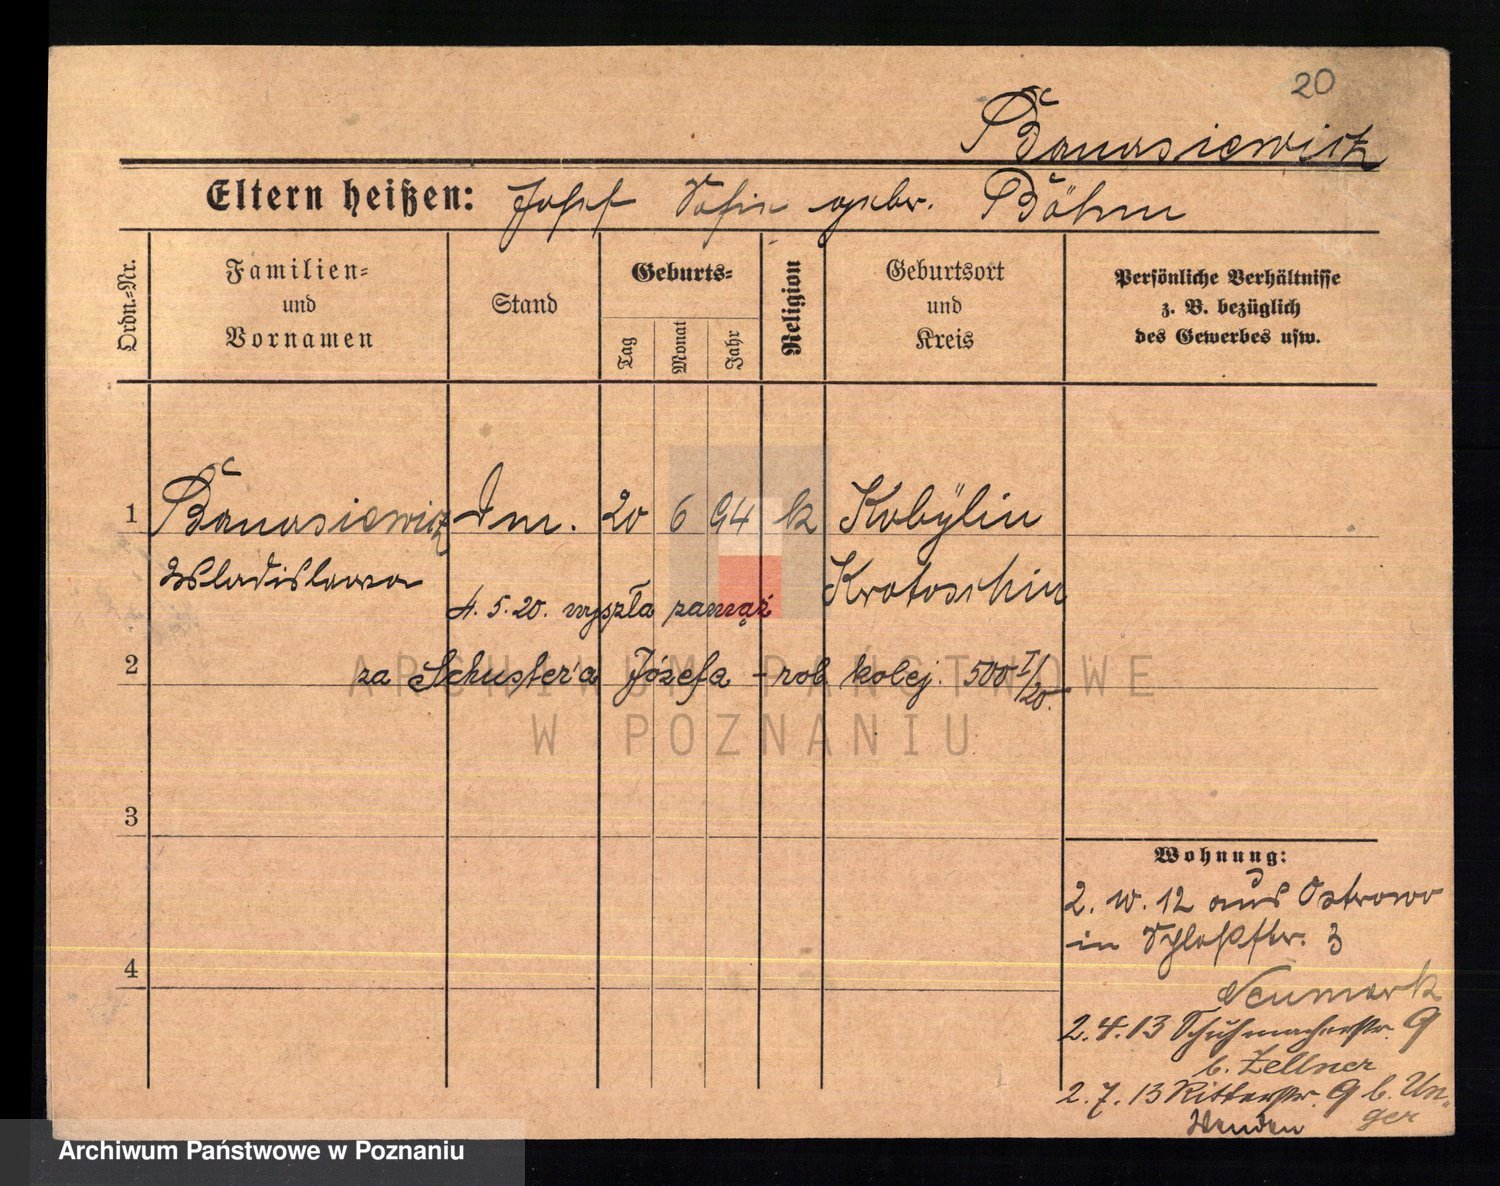 20
Banasiewicz
Eltern heißen: Josef Sofie gebr. Böhm
Ordn.=Nr.
Familien=
und
Vornamen
Stand
Geburts=
Tag
Monat
Jahr
Religion
Geburtsort
und
Kreis
Persönliche Verhältnisse
z. B. bezüglich
des Gewerbes usw.
1 Banasiewicz 20 6 94 k Kobÿlin
Wladislawa Krotoschin
4. 5. 20. wyszła zamąż
2 za Schuster'a Józefa - rob. kolej. 500 I/20.
3
4
Wohnung:
2. W. 12 aus Ostrowo
in Schloßstr. 3
Neumark
2.4.13 Schuhmacherstr. 9
b. Zellner
2.7.13 Ritterstr. 9 b. Un-
ger
Wenden
ARCHIWUM PAŃSTWOWE
W POZNANIU
Archiwum Państwowe w Poznaniu